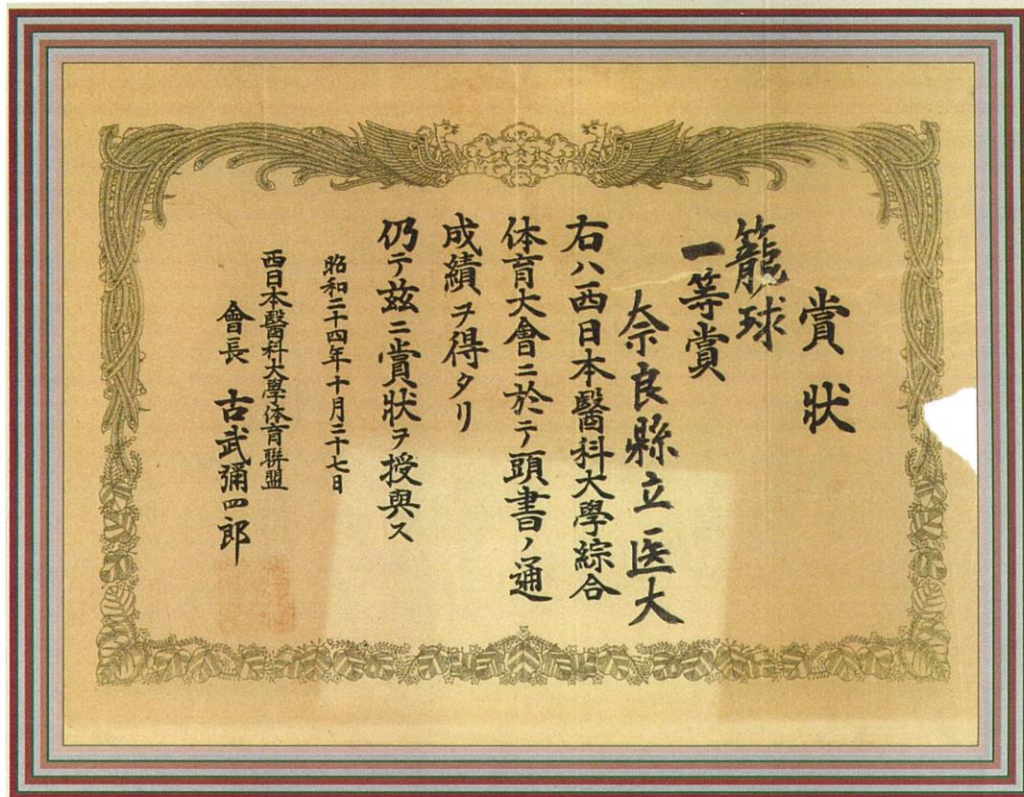 賞状
籠球
一等賞
奈良縣立医大
右ハ西日本醫科大學綜合
体育大會ニ於テ頭書ノ通
成績ヲ得タリ
仍テ茲ニ賞状ヲ授與ス
昭和二十四年十月二十七日
西日本醫科大學体育聯盟
會長 古武彌四郎